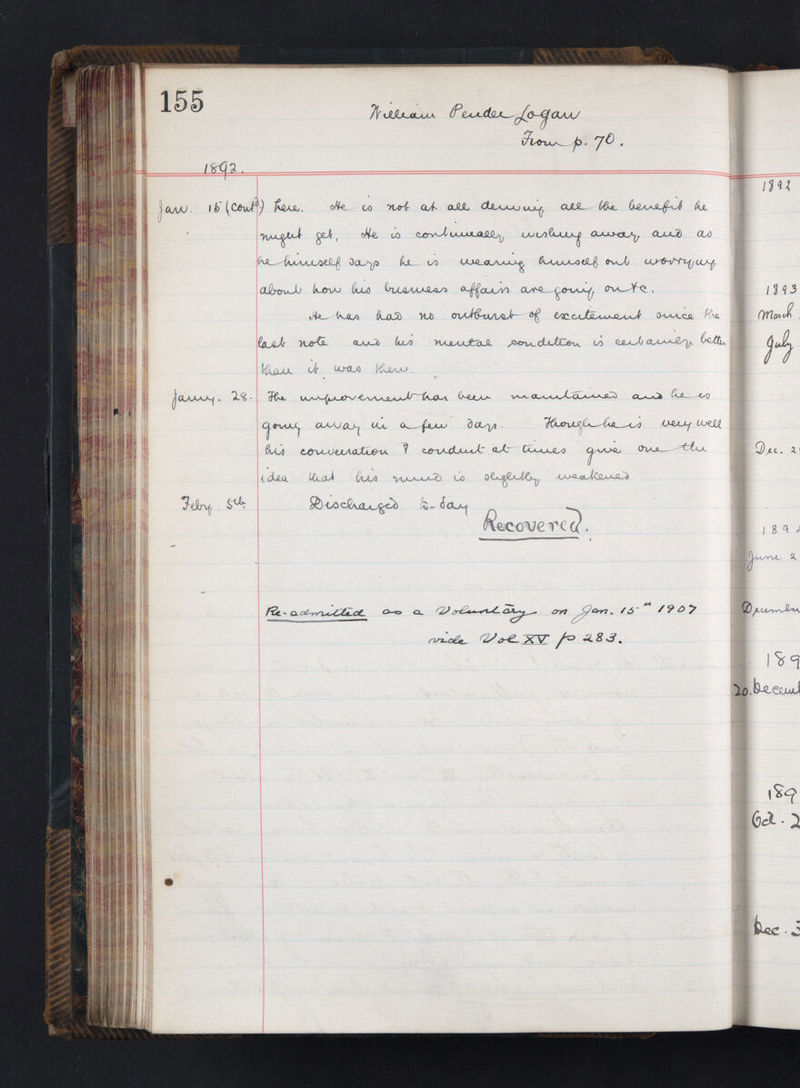 155
William Pender Logan
From p. 70.
1892.
Jan. 15 (Contd) here. He is not at all deriving all the benefit he
might get, He is continually wishing away and as
he himself says he is wearing himself out worrying
about how his business affairs are going on &c.
He has had no outburst of excitement since the
last note and his mental condition is certainly better
than it was then.
Jany. 28. The improvement has been maintained and he is
going away in a few days. Though he is very well
his conversation & conduct at times give one the
idea that his mind is slightly weakened
Feby. 5th Discharged to-day
Recovered.
Re-admitted as a Voluntary on Jan. 15th 1907
vide Vol XV p 283.
1892
1893
March
July
Dec. 2
189
June 2
189
20. Decem
189
Oct. 2
Dec. 3